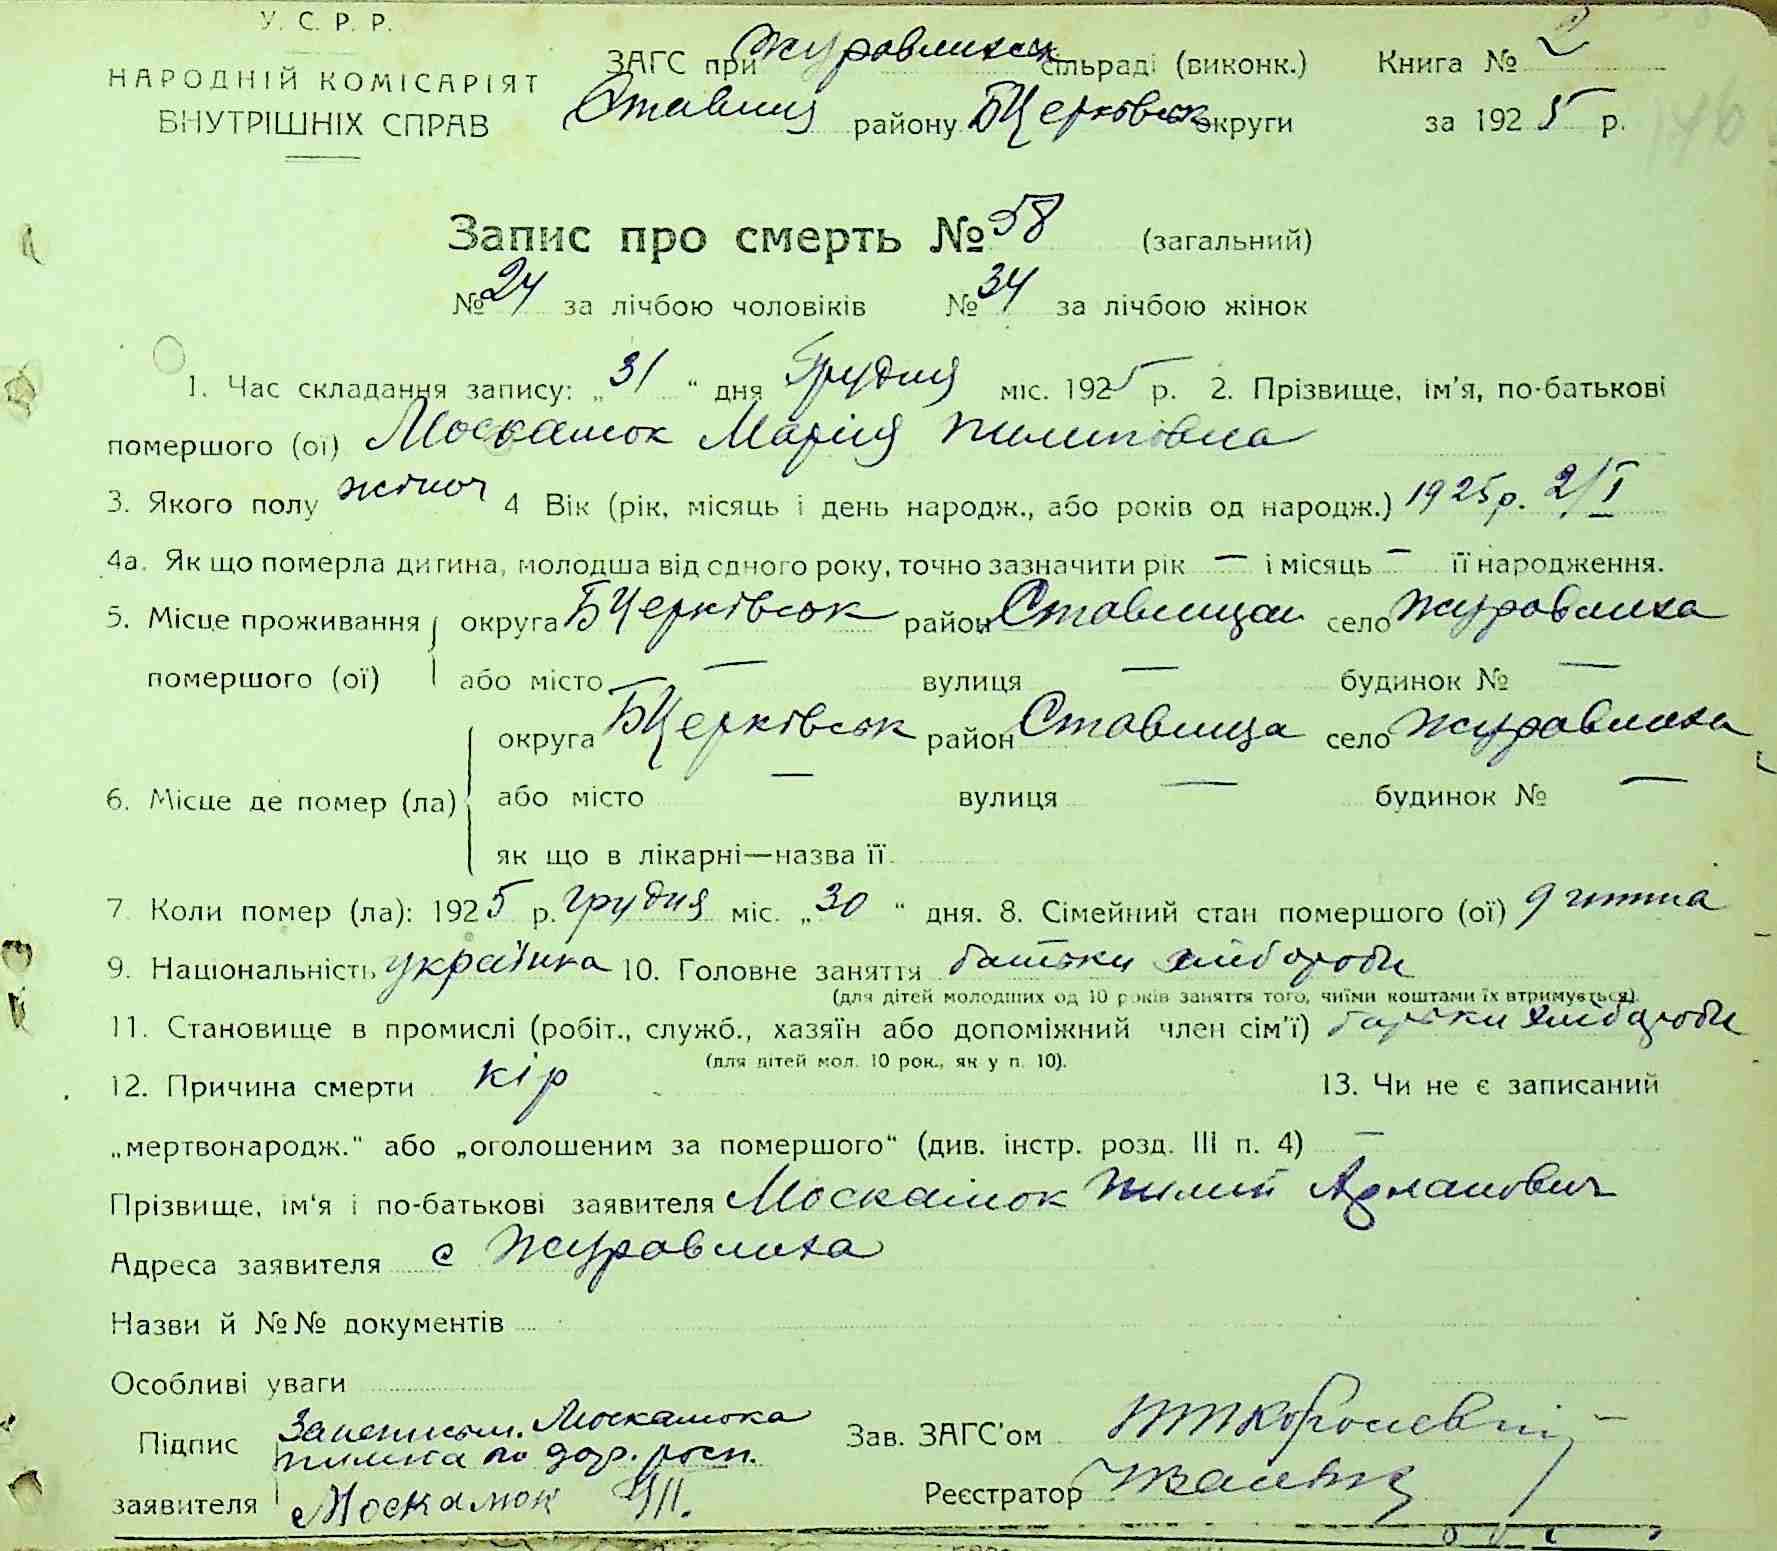 У. С. Р. Р.
НАРОДНІЙ КОМІСАРІЯТ
ВНУТРІШНІХ СПРАВ
ЗАГС при Журавлихск сільраді (виконк.) Книга № 2
Ставищ району БЦерковськ округи за 1925 р.
146
Запис про смерть № 58 (загальний)
№ 24 за лічбою чоловіків № 34 за лічбою жінок
1. Час складання запису: „31“ дня Грудня міс. 1925 р. 2. Прізвище, ім'я, по-батькові
помершого (ої) Москалюк Марія Пилипівна
3. Якого полу жіноч 4 Вік (рік, місяць і день народж., або років од народж.) 1925р. 2/I
4а. Як що померла дитина, молодша від одного року, точно зазначити рік — і місяць — її народження.
5. Місце проживання округа БЦерківськ район Ставища село Журавлиха
помершого (ої) або місто — вулиця — будинок № —
округа БЦерківськ район Ставища село Журавлиха
6. Місце де помер (ла) або місто — вулиця — будинок № —
як що в лікарні—назва її
7. Коли помер (ла): 1925 р. грудня міс. „30“ дня. 8. Сімейний стан помершого (ої)
9. Національність українка 10. Головне заняття батьки хлібороби
(для дітей молодших од 10 років заняття того, чиїми коштами їх втримується).
11. Становище в промислі (робіт., служб., хазяїн або допоміжний член сім'ї) батьки хлібороби
(для дітей мол. 10 рок., як у п. 10).
12. Причина смерти кір 13. Чи не є записаний
„мертвонародж.“ або „оголошеним за помершого“ (див. інстр. розд. III п. 4) —
Прізвище, ім'я і по-батькові заявителя Москалюк Пилип
Адреса заявителя с Журавлиха
Назви й №№ документів
Особливі уваги
Підпис Москалюка
Пилипа по
заявителя Москалюк
Зав. ЗАГС'ом
Реєстратор